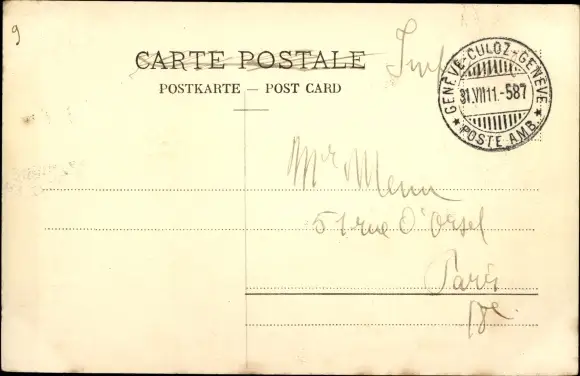 9
CARTE POSTALE
POSTKARTE — POST CARD
GENÈVE-CULOZ-GENÈVE
31.VII11.-587
★ POSTE AMB. ★
Mr Menn
51 rue d'Orsel
Paris
18e.